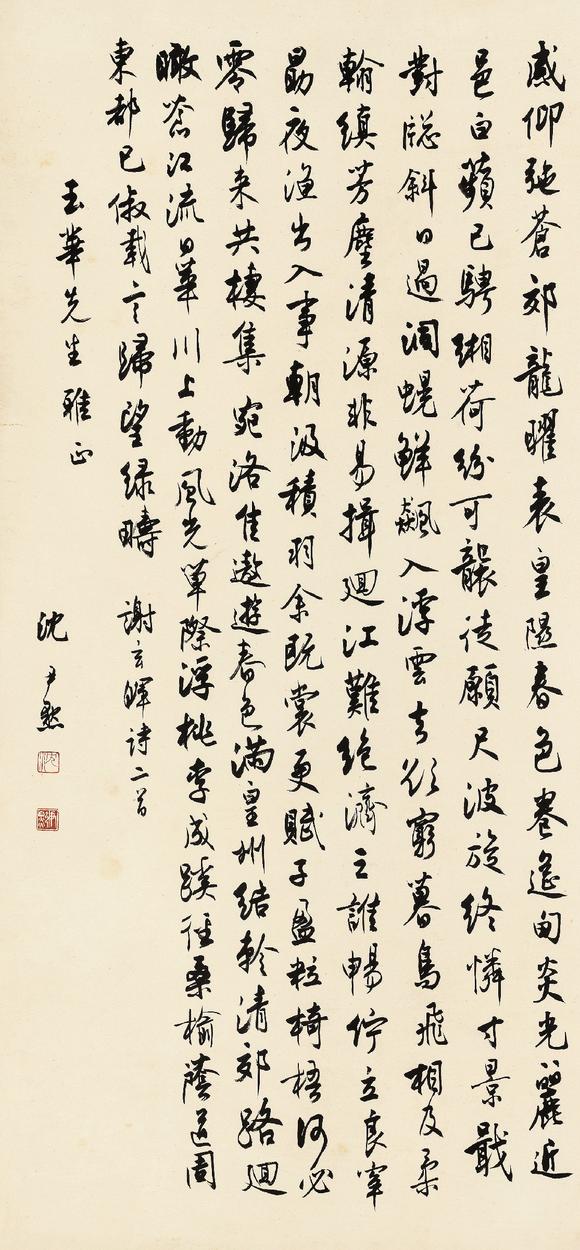 威仰弛蒼郊龍曜表皇隰春色卷遙甸炎光麗近
邑白蘋已騁緗荷紛可襲徒願尺波旋終憐寸景戢
對牎斜日過洞幌鮮飈入浮雲去欲窮暮鳥飛相及柔
翰縝芳塵清源非易揖迴江難絕濟云誰暢佇立良宰
勗夜漁出入事朝汲積羽余既裳更賦子盈粒椅梧何必
零歸來共棲集宛洛佳遨遊春色滿皇州結軫清郊路迴
瞰蒼江流日華川上動風光草際浮桃李成蹊徑桑榆蔭道周
東都已俶載言歸望綠疇 謝玄暉詩二首
玉華先生雅正
沈尹默
沈
尹默